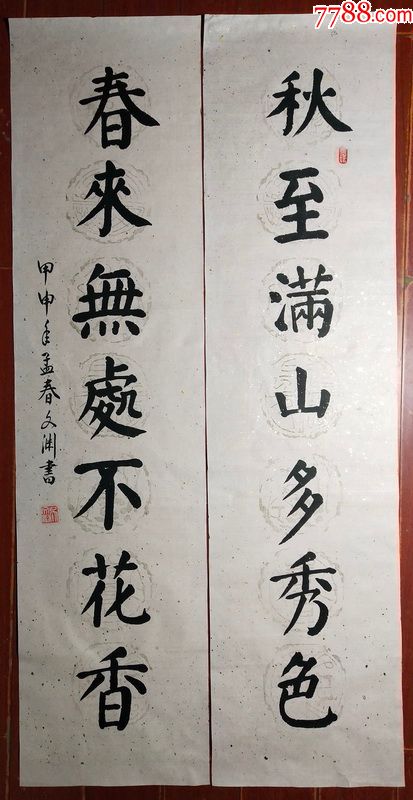 7788.com
秋至滿山多秀色
春來無處不花香
甲申年孟春文渊書